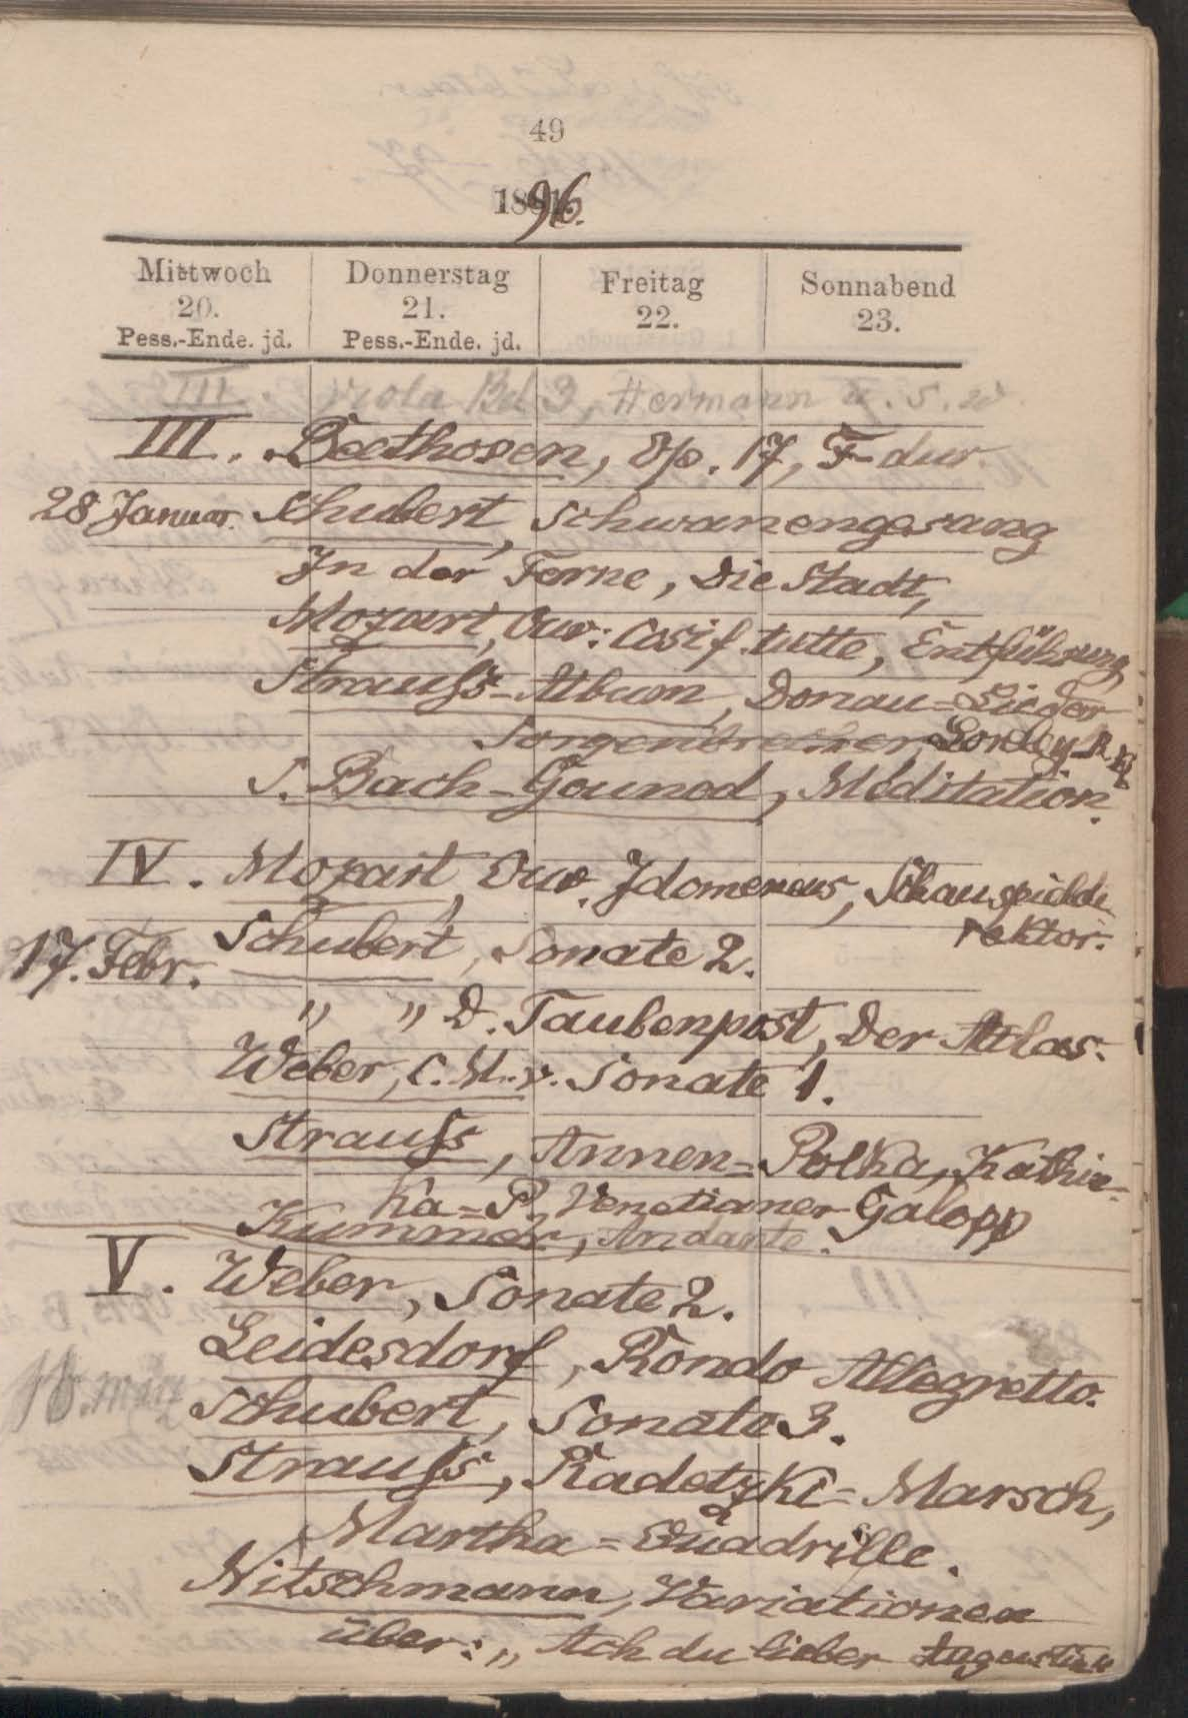 49
1896.
Mittwoch Donnerstag Freitag Sonnabend
20. 21. 22. 23.
Pess.-Ende. jd. Pess.-Ende. jd.
III. Viola Bd 3, Hermann u. s. w.
III. Beethoven, Op. 17, F-dur.
28 Januar. Schubert, Schwanengesang
In der Ferne, Die Stadt,
Mozart, Ouv: Cosi f. tutte, Entführung,
Strauß-Album, Donau-Lieder
Sorgenbrecher, Loreley-R.
S. Bach-Gounod, Méditation.
IV. Mozart, Ouv. Idomeneus, Schauspieldi
rektor.
17. Febr. Schubert, Sonate 2.
" " D. Taubenpost, Der Atlas.
Weber, C. M. v. Sonate 1.
Strauß, Annen-Polka, Kathin-
ka-P. Venetianer Galopp
Kummer, Andante.
V. Weber, Sonate 2.
Leidesdorf, Rondo Allegretto.
16. März
Schubert, Sonate 3.
Strauß, Radetzki-Marsch,
Martha-Quadrille.
Nitschmann, Variationen
über: „Ach du lieber Augustin"